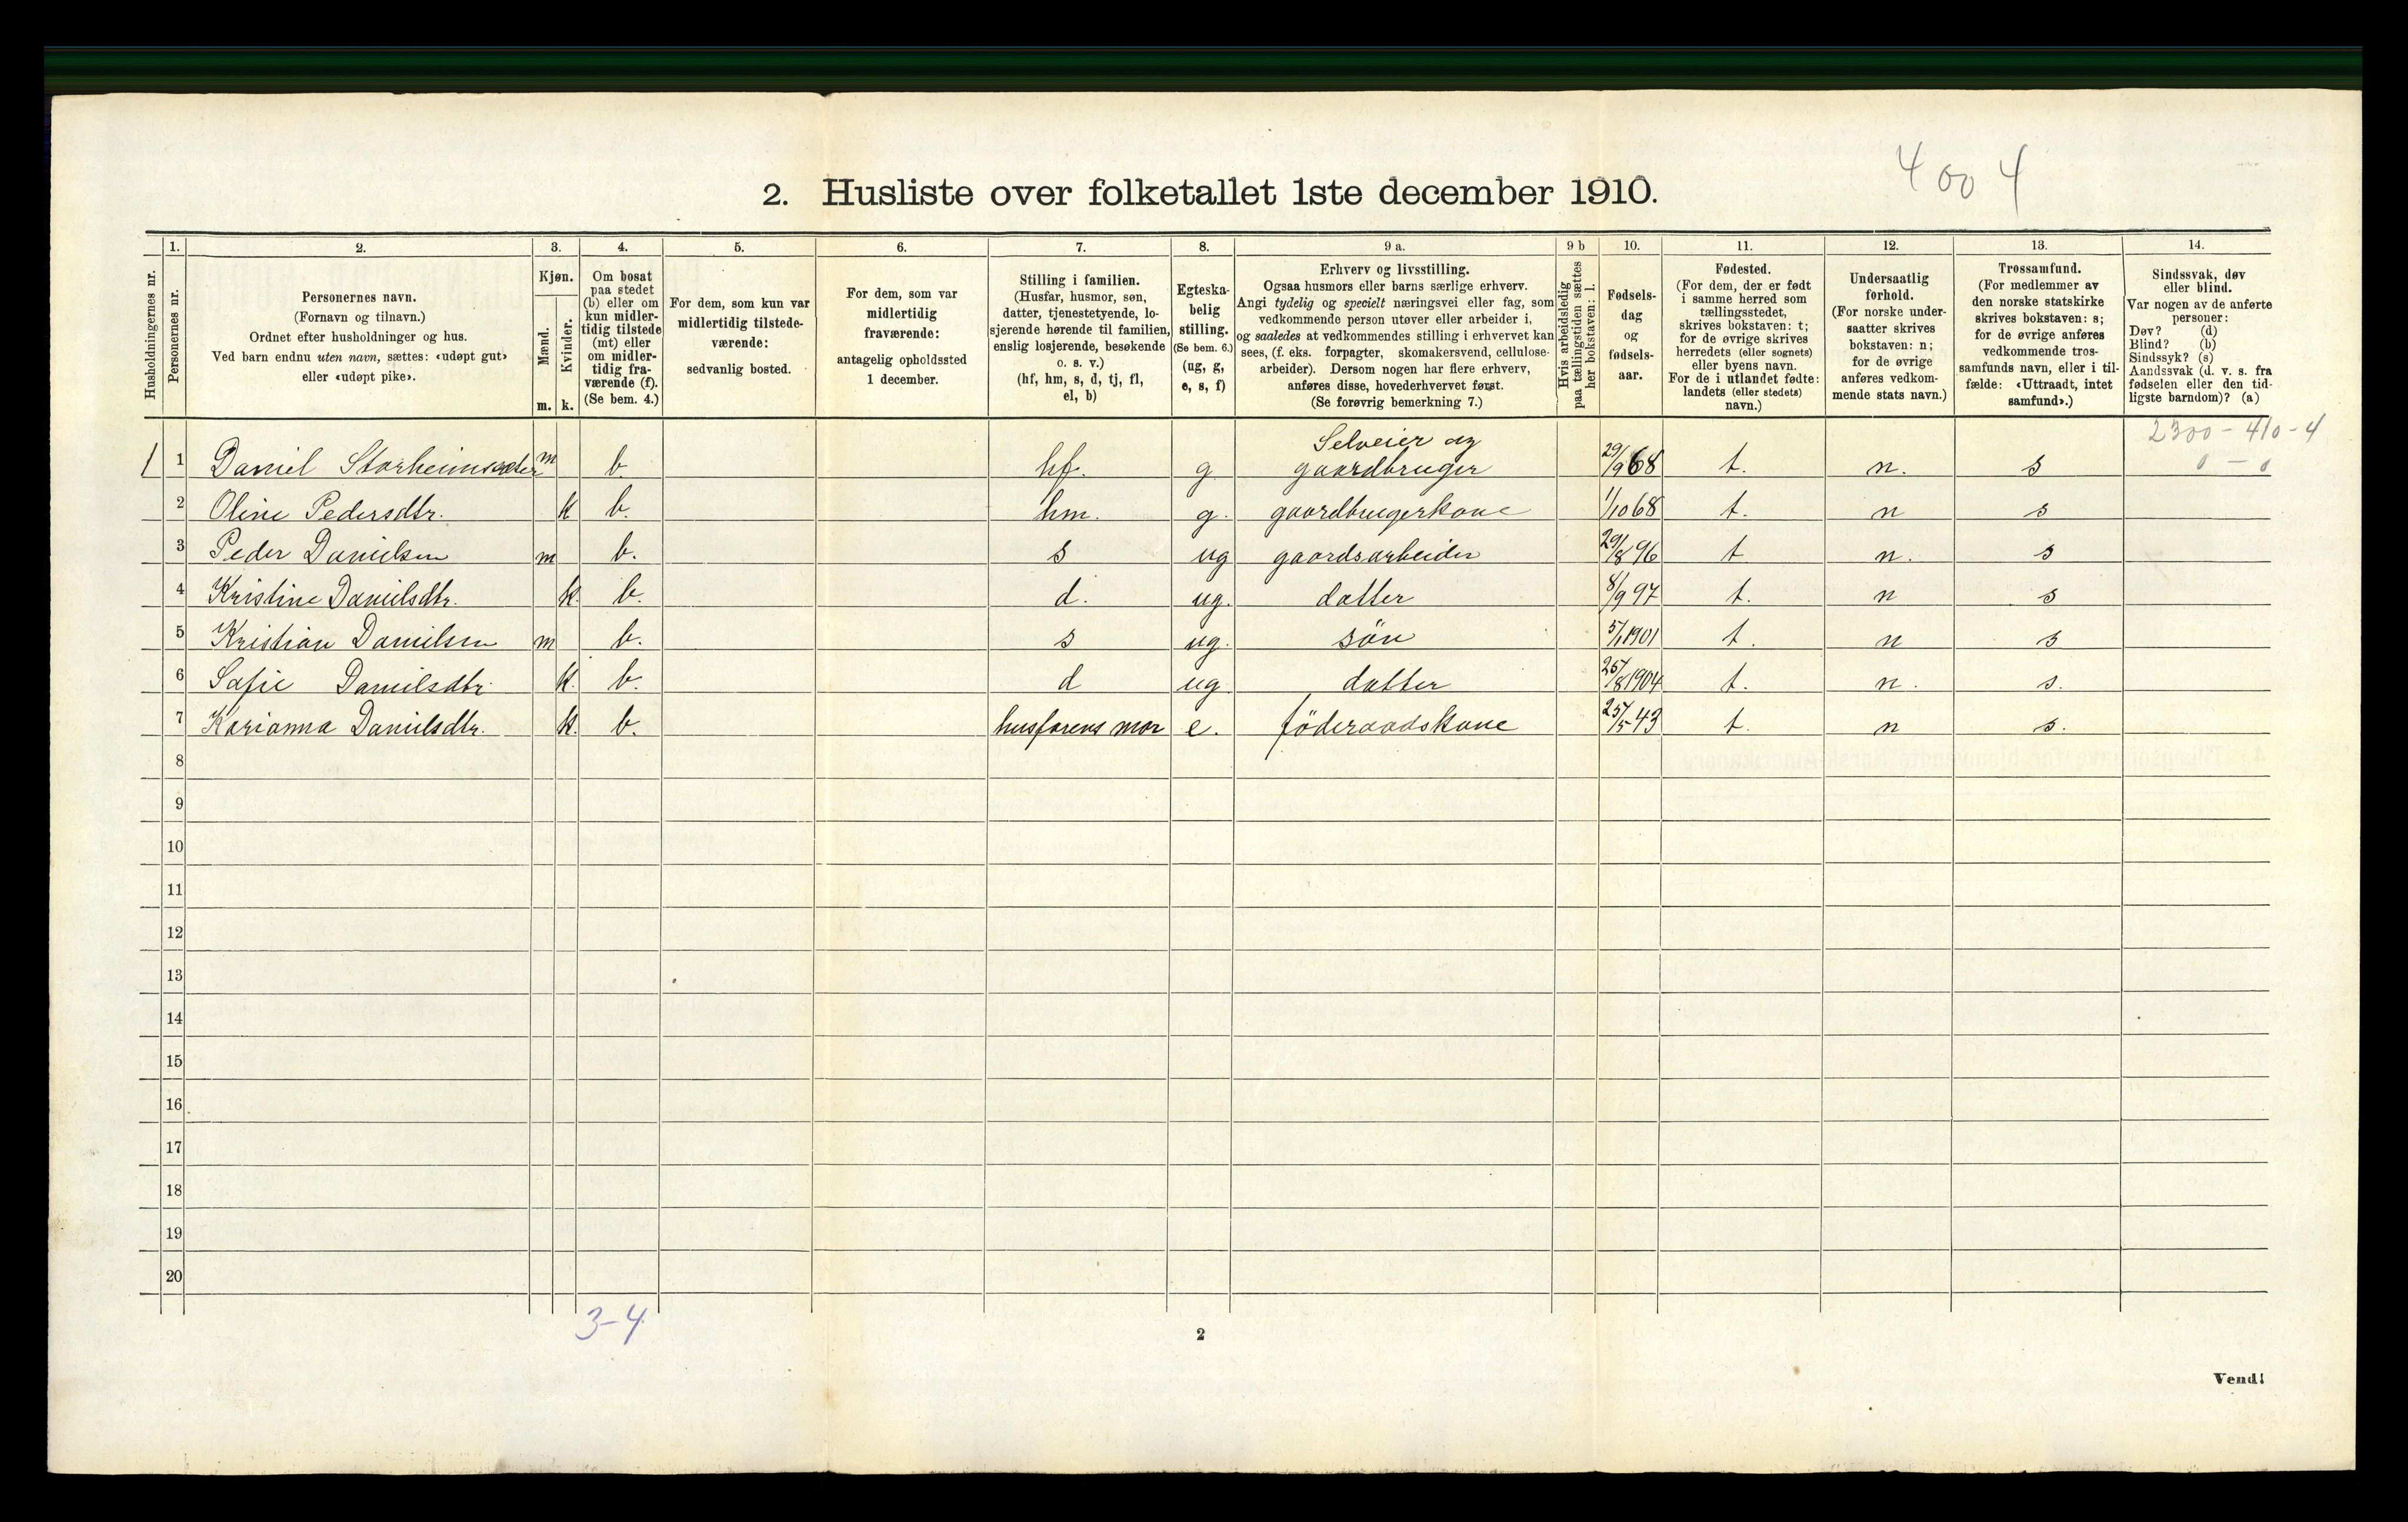 4 00 4
2. Husliste over folketallet 1ste december 1910.
1. 2. 3. 4. 5. 6. 7. 8. 9 a. 9 b 10. 11. 12. 13. 14.
Husholdningernes nr.
Personernes nr.
Personernes navn.
(Fornavn og tilnavn.)
Ordnet efter husholdninger og hus.
Ved barn endnu uten navn, sættes: «udøpt gut»
eller «udøpt pike».
Kjøn.
Mænd.
Kvinder.
m. k.
Om bosat
paa stedet
(b) eller om
kun midler-
tidig tilstede
(mt) eller
om midler-
tidig fra-
værende (f).
(Se bem. 4.)
For dem, som kun var
midlertidig tilstede-
værende:
sedvanlig bosted.
For dem, som var
midlertidig
fraværende:
antagelig opholdssted
1 december.
Stilling i familien.
(Husfar, husmor, søn,
datter, tjenestetyende, lo-
sjerende hørende til familien,
enslig losjerende, besøkende
o. s. v.)
(hf, hm, s, d, tj, fl,
el, b)
Egteska-
belig
stilling.
(Se bem. 6.)
(ug, g,
e, s, f)
Erhverv og livsstilling.
Ogsaa husmors eller barns særlige erhverv.
Angi tydelig og specielt næringsvei eller fag, som
vedkommende person utøver eller arbeider i,
og saaledes at vedkommendes stilling i erhvervet kan
sees, (f. eks. forpagter, skomakersvend, cellulose-
arbeider). Dersom nogen har flere erhverv,
anføres disse, hovederhvervet først.
(Se forøvrig bemerkning 7.)
Hvis arbeidsledig
paa tællingstiden sættes
her bokstaven: l.
Fødsels-
dag
og
fødsels-
aar.
Fødested.
(For dem, der er født
i samme herred som
tællingsstedet,
skrives bokstaven: t;
for de øvrige skrives
herredets (eller sognets)
eller byens navn.
For de i utlandet fødte:
landets (eller stedets)
navn.)
Undersaatlig
forhold.
(For norske under-
saatter skrives
bokstaven: n;
for de øvrige
anføres vedkom-
mende stats navn.)
Trossamfund.
(For medlemmer av
den norske statskirke
skrives bokstaven: s;
for de øvrige anføres
vedkommende tros-
samfunds navn, eller i til-
fælde: «Uttraadt, intet
samfund».)
Sindssvak, døv
eller blind.
Var nogen av de anførte
personer:
Døv? (d)
Blind? (b)
Sindssyk? (s)
Aandssvak (d. v. s. fra
fødselen eller den tid-
ligste barndom)? (a)
2300 - 410 - 4
0 - 0
Selveier og
1 1 Daniel Storheimsæter m b. hf. g gaardbruger 29/9 68 t. n. s
2 Oline Pedersdtr. k b. hm. g. gaardbrugerkone 1/10 68 t. n s
3 Peder Danielsen m b. s ug gaardsarbeider 29/8 96 t n. s
4 Kristine Danielsdtr. k. b. d. ug. datter 8/9 97 t. n s
5 Kristian Danielsen m b. s ug. sön 5/1 1901 t. n s
6 Sofie Danielsdtr k. b. d ug. datter 25/8 1904 t. n. s.
7 Karianna Danielsdtr. k. b. husfarens mor e. föderaadskone 25/5 43 t. n s.
8
9
10
11
12
13
14
15
16
17
18
19
20
3-4
2
Vend!